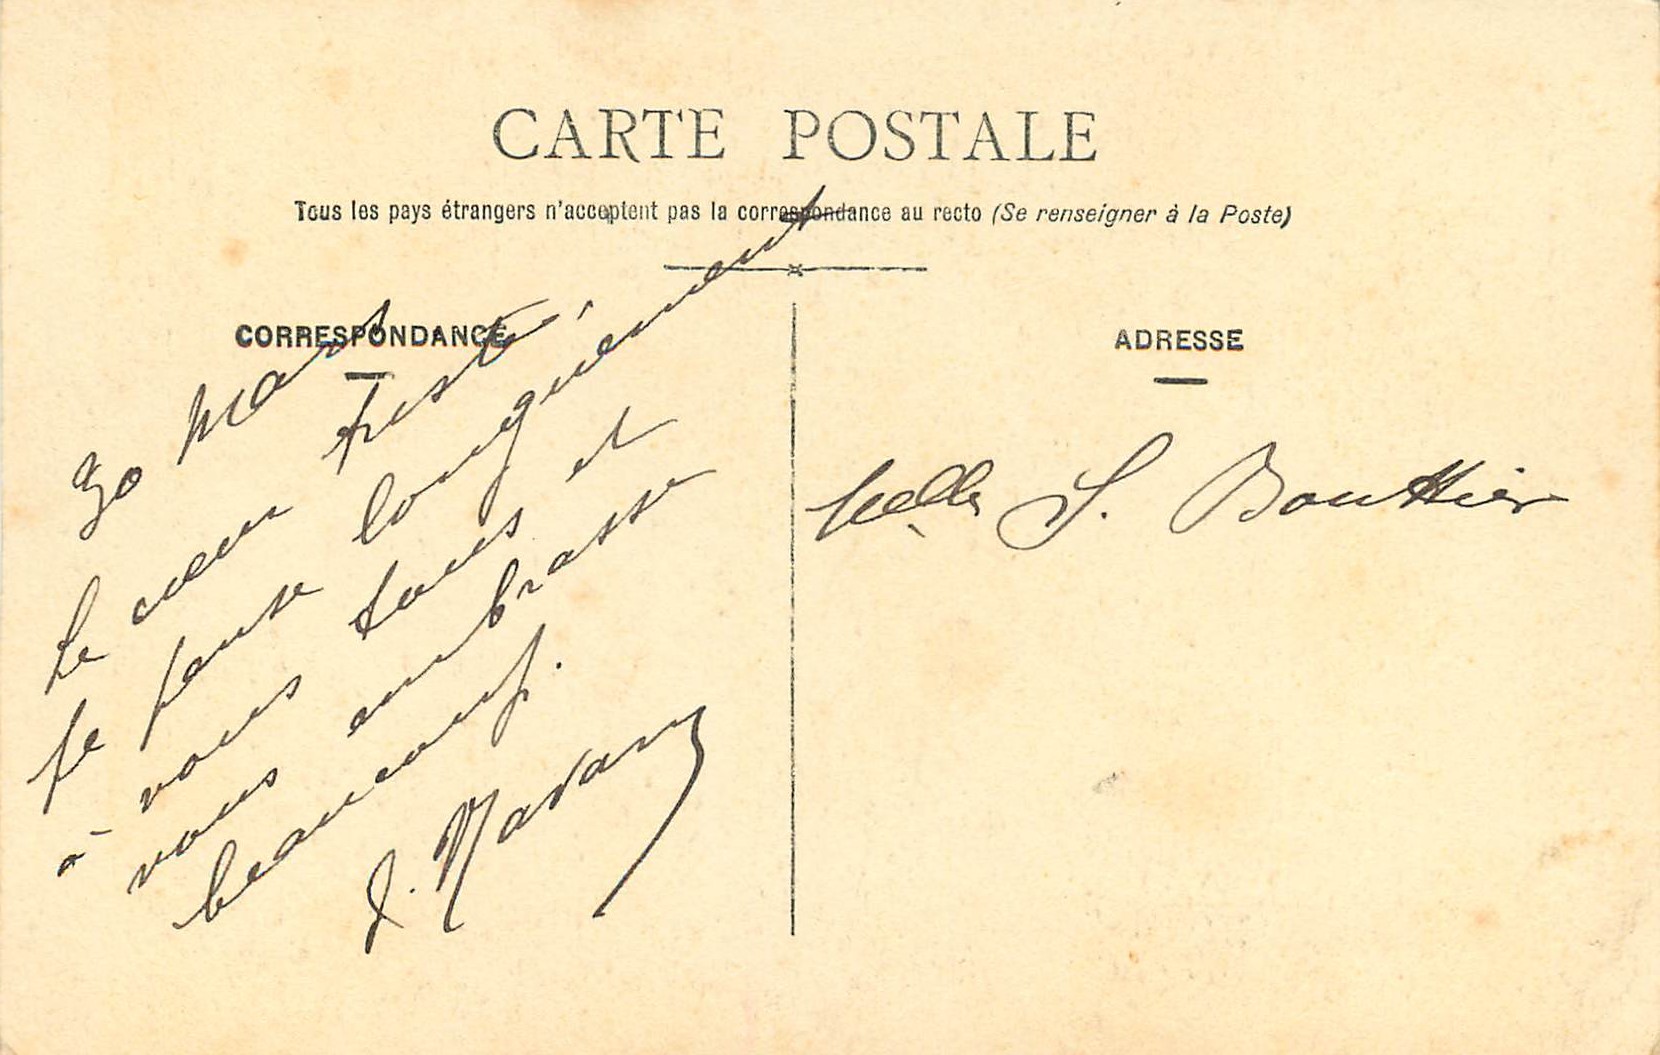 CARTE POSTALE
Tous les pays étrangers n'acceptent pas la correspondance au recto (Se renseigner à la Poste)
CORRESPONDANCE
30 Mars
Le cœur triste
je pense longuement
à vous tous et
vous embrasse
beaucoup.
J.
ADRESSE
Melle S. Bouttier